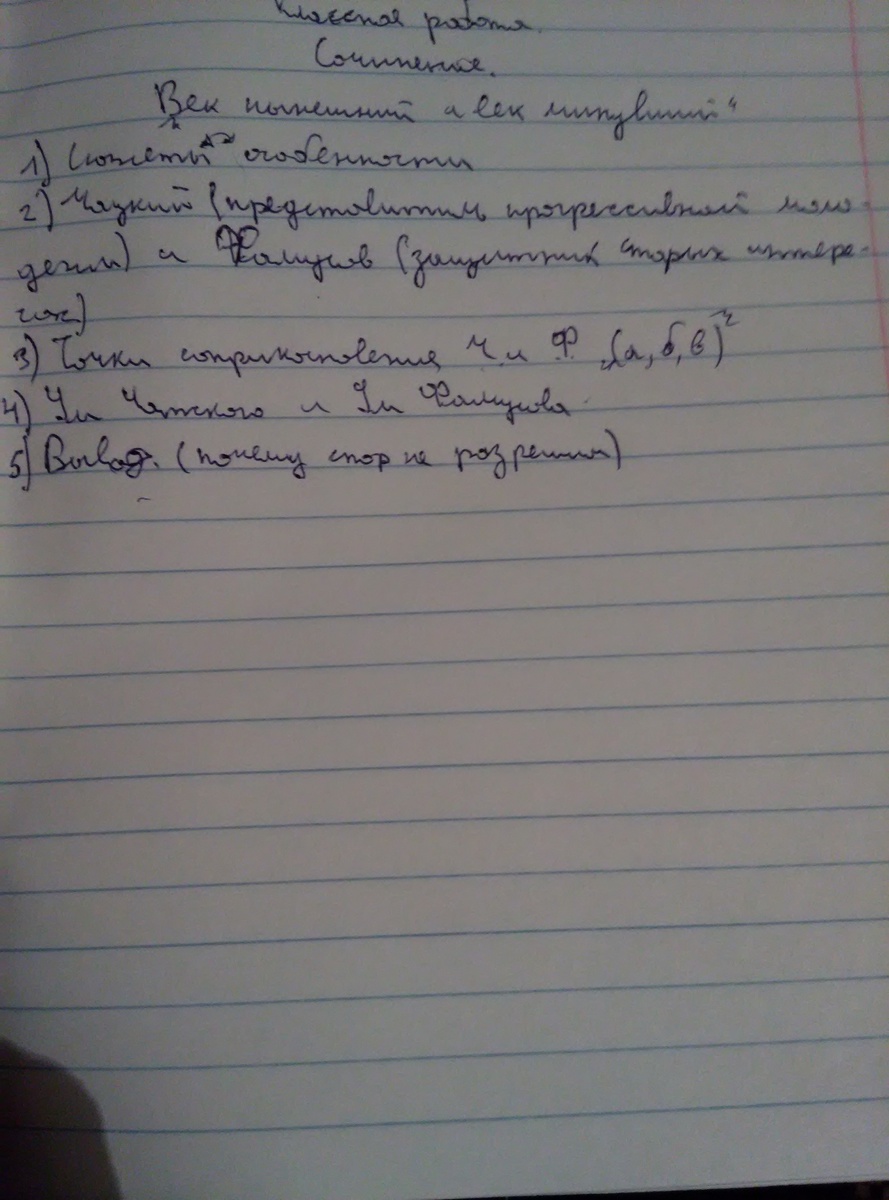 Классная работа.
Сочинение.
Век нынешний и век минувший"
1) Сюжеты особенности
2) Чацкий (представитиль прогрессивной моло-
дежи) и Фамусов (защитник старых интере-
сов)
3) Точки соприкосновения Ч. и Ф. (а, б, в)
4) Ум Чатского и Ум Фамусова.
5) Вывод. (почему спор не разрешим)